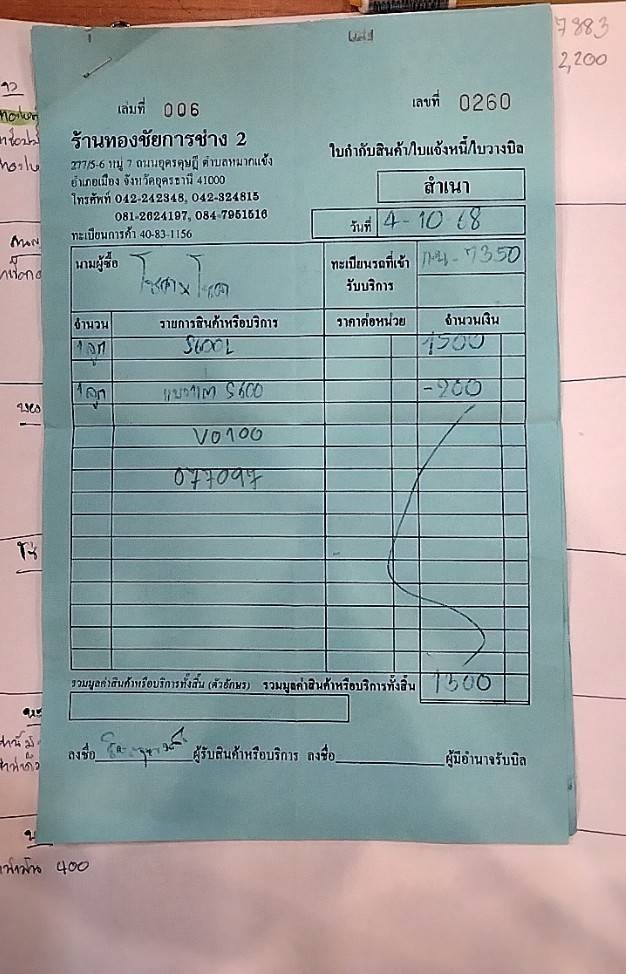 7883
2,200
เล่มที่ 006
เลขที่ 0260
ร้านทองชัยการช่าง 2
277/5-6 หมู่ 7 ถนนอุดรดุษฎี ตำบลหมากแข้ง
อำเภอเมือง จังหวัดอุดรธานี 41000
โทรศัพท์ 042-242348, 042-324815
081-2624197, 084-7951516
ทะเบียนการค้า 40-83-1156
ใบกำกับสินค้า/ใบแจ้งหนี้/ใบวางบิล
สำเนา
วันที่ 4-10-68
นามผู้ซื้อ
ทะเบียนรถที่เข้ารับบริการ 7350
จำนวน รายการสินค้าหรือบริการ ราคาต่อหน่วย จำนวนเงิน
1 ลูก S600L 1500
1 ลูก S600 -200
V0100
077097
รวมมูลค่าสินค้าหรือบริการทั้งสิ้น (ตัวอักษร) รวมมูลค่าสินค้าหรือบริการทั้งสิ้น 1300
ลงชื่อ ผู้รับสินค้าหรือบริการ ลงชื่อ ผู้มีอำนาจรับบิล
400